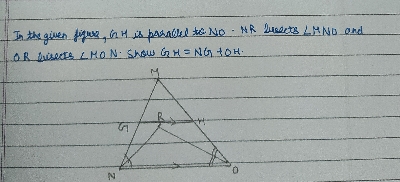 In the given figure, GH is parallel to NO. NR bisects ∠MNO and
OR bisects ∠MON. Show GH = NG + OH.
M
G R H
N O